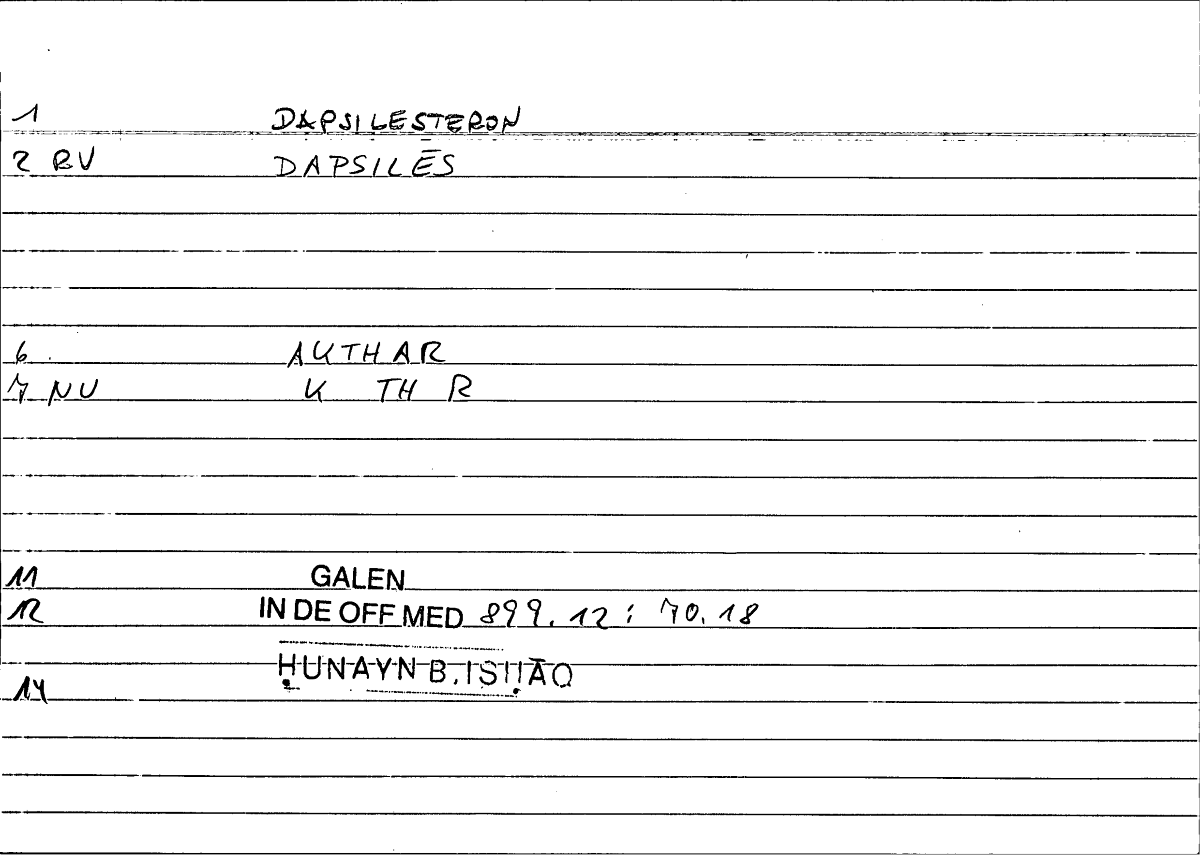 1 DAPSILESTERON
2 RV DAPSILĒS
6 AKTHAR
7 NV K TH R
11 GALEN
12 IN DE OFF MED 899.12 : 70.18
14 ḤUNAYN B. ISḤĀQ